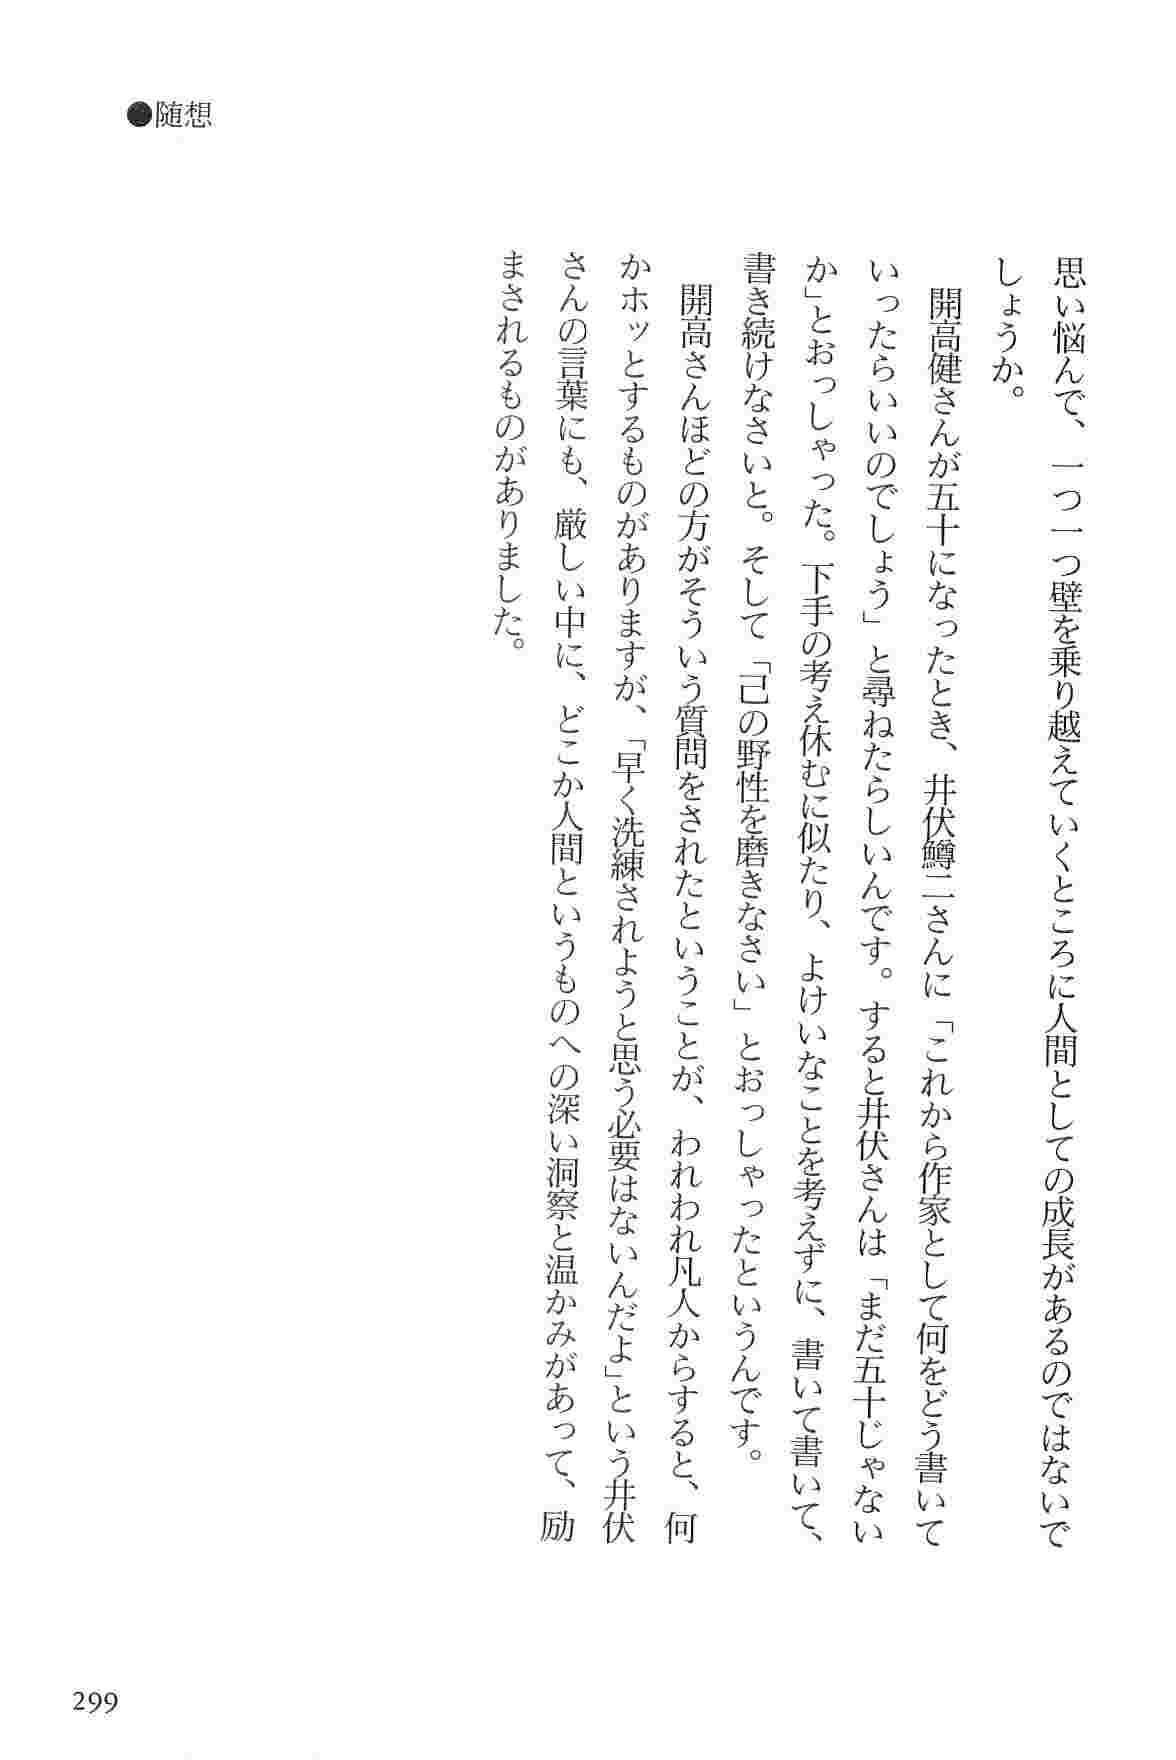 ●随想
思い悩んで、一つ一つ壁を乗り越えていくところに人間としての成長があるのではないで
しょうか。
開高健さんが五十になったとき、井伏鱒二さんに「これから作家として何をどう書いて
いったらいいのでしょう」と尋ねたらしいんです。すると井伏さんは「まだ五十じゃない
か」とおっしゃった。下手の考え休むに似たり、よけいなことを考えずに、書いて書いて、
書き続けなさいと。そして「己の野性を磨きなさい」とおっしゃったというんです。
開高さんほどの方がそういう質問をされたということが、われわれ凡人からすると、何
かホッとするものがありますが、「早く洗練されようと思う必要はないんだよ」という井伏
さんの言葉にも、厳しい中に、どこか人間というものへの深い洞察と温かみがあって、励
まされるものがありました。
299